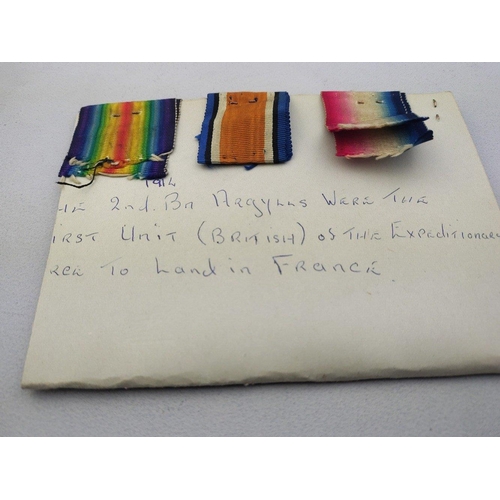 1914
HE 2nd. Bn ARGYLLS WERE THE
IRST UNIT (BRITISH) of THE EXPEDITIONARY
RCE To Land in FRANCE